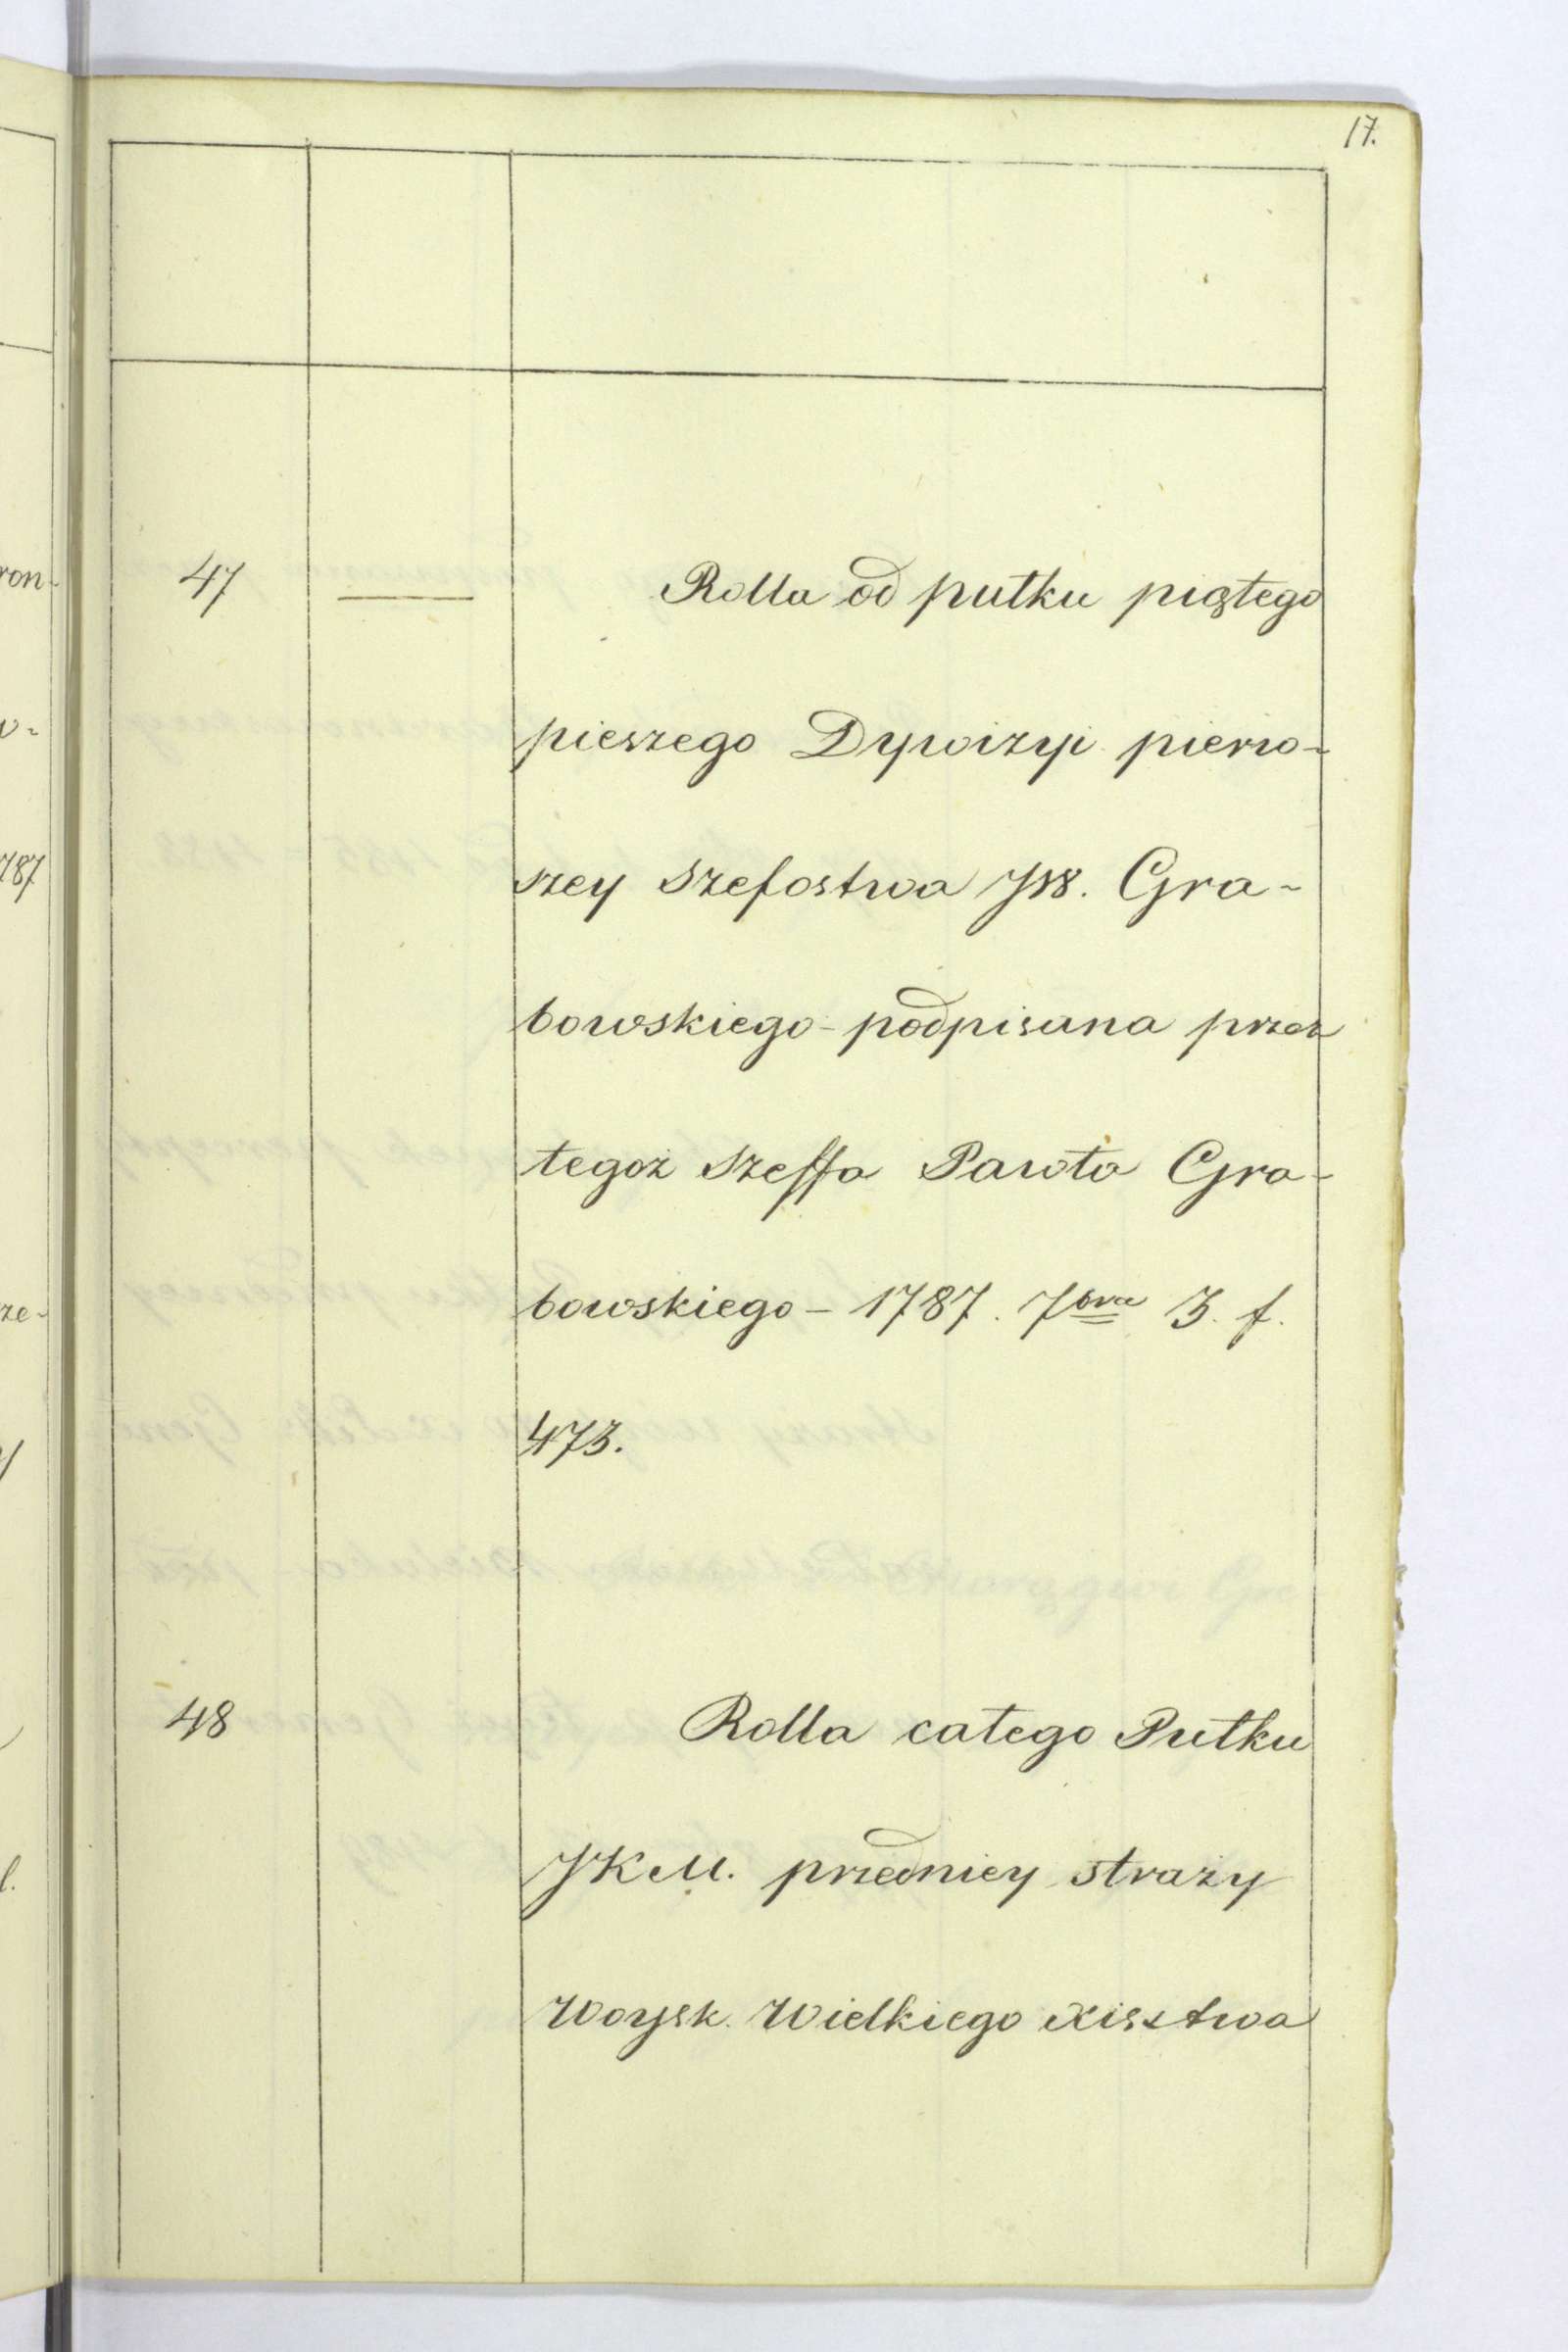 17.
47 — Rolla od pułku piątego
pieszego Dywizyi pierw-
szey Szefostwa JW. Gra-
bowskiego - podpisana przez
tegoż Szeffa Pawła Gra-
bowskiego - 1787. 7bra 3. f.
473.
48 Rolla całego Pułku
JKM. przedniey straży
Woysk. Wielkiego Xięstwa
ron-
w-
787
ze-